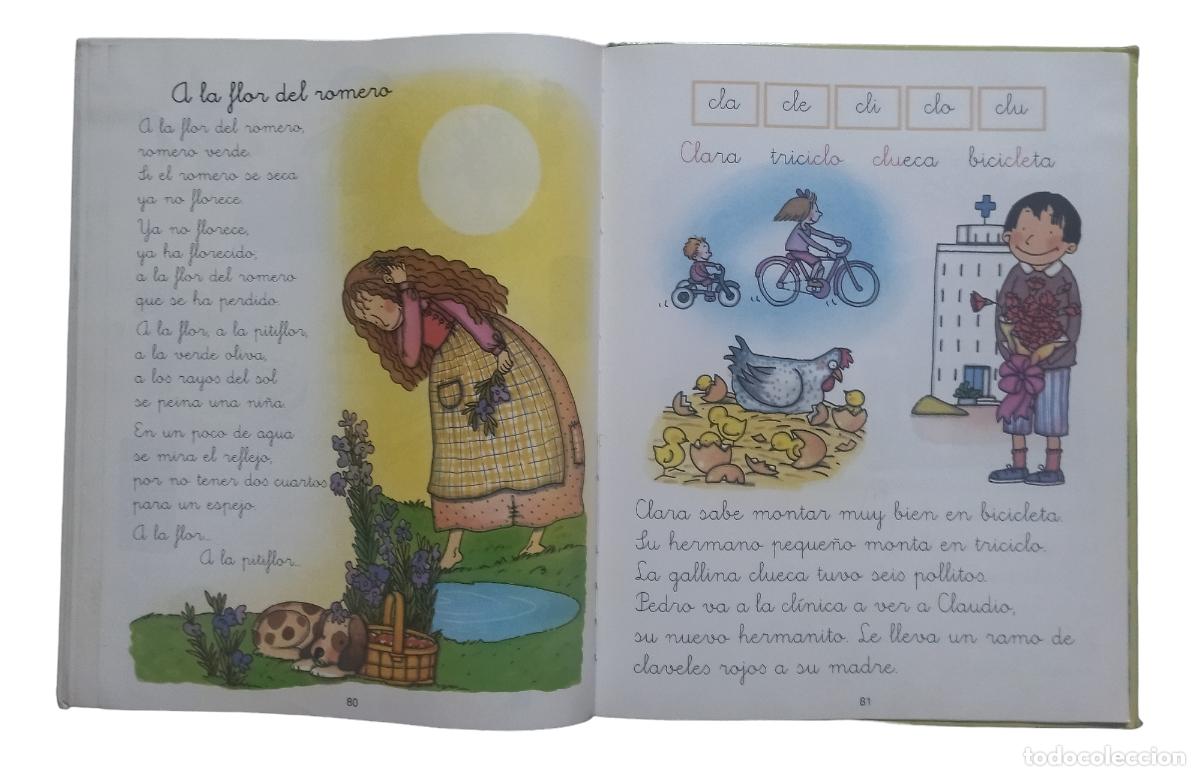 A la flor del romero
A la flor del romero,
romero verde.
Si el romero se seca
ya no florece.
Ya no florece,
ya ha florecido;
a la flor del romero
que se ha perdido.
A la flor, a la pitiflor,
a la verde oliva,
a los rayos del sol
se peina una niña.
En un poco de agua
se mira el reflejo,
por no tener dos cuartos
para un espejo.
A la flor...
A la pitiflor...
80
cla cle cli clo clu
Clara triciclo clueca bicicleta
Clara sabe montar muy bien en bicicleta.
Su hermano pequeño monta en triciclo.
La gallina clueca tuvo seis pollitos.
Pedro va a la clínica a ver a Claudio,
su nuevo hermanito. Le lleva un ramo de
claveles rojos a su madre.
81
todocoleccion